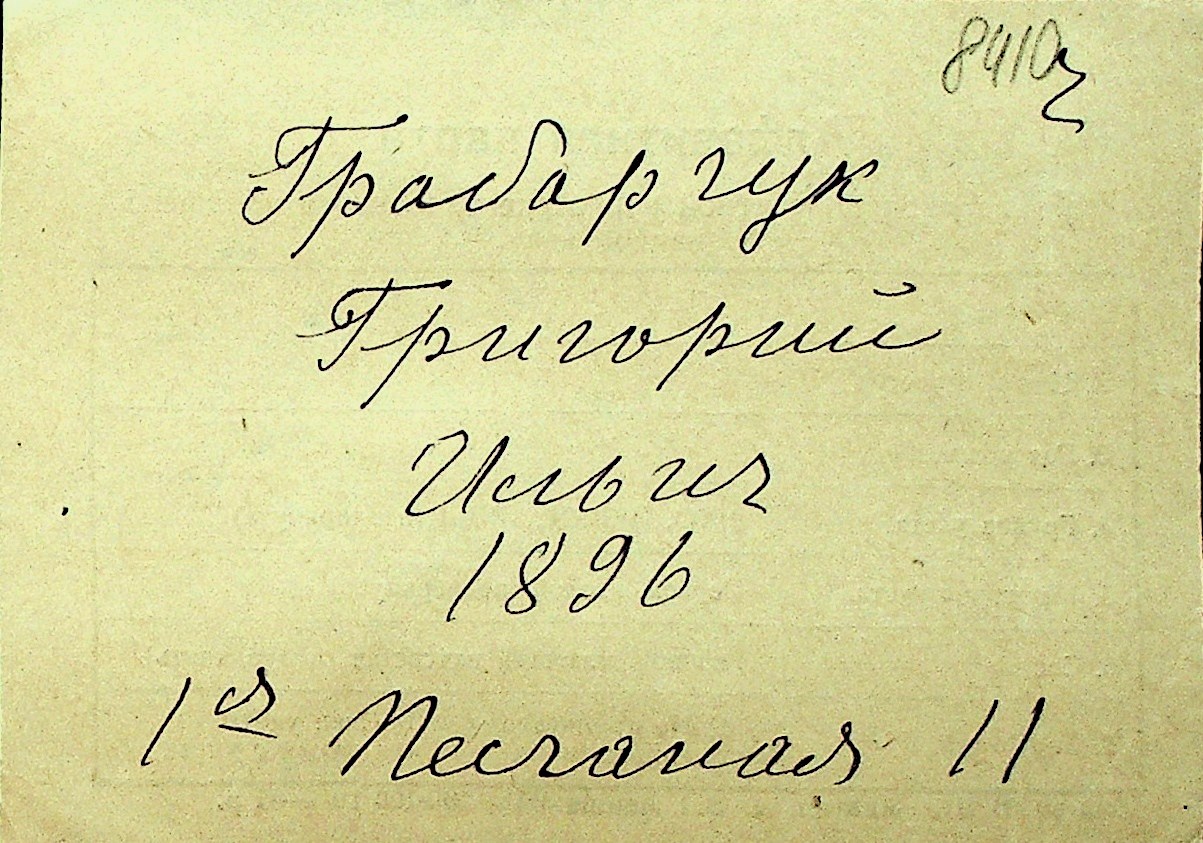 8410
Грабарчук
Григорий
Ильич
1896
1я Песчаная 11